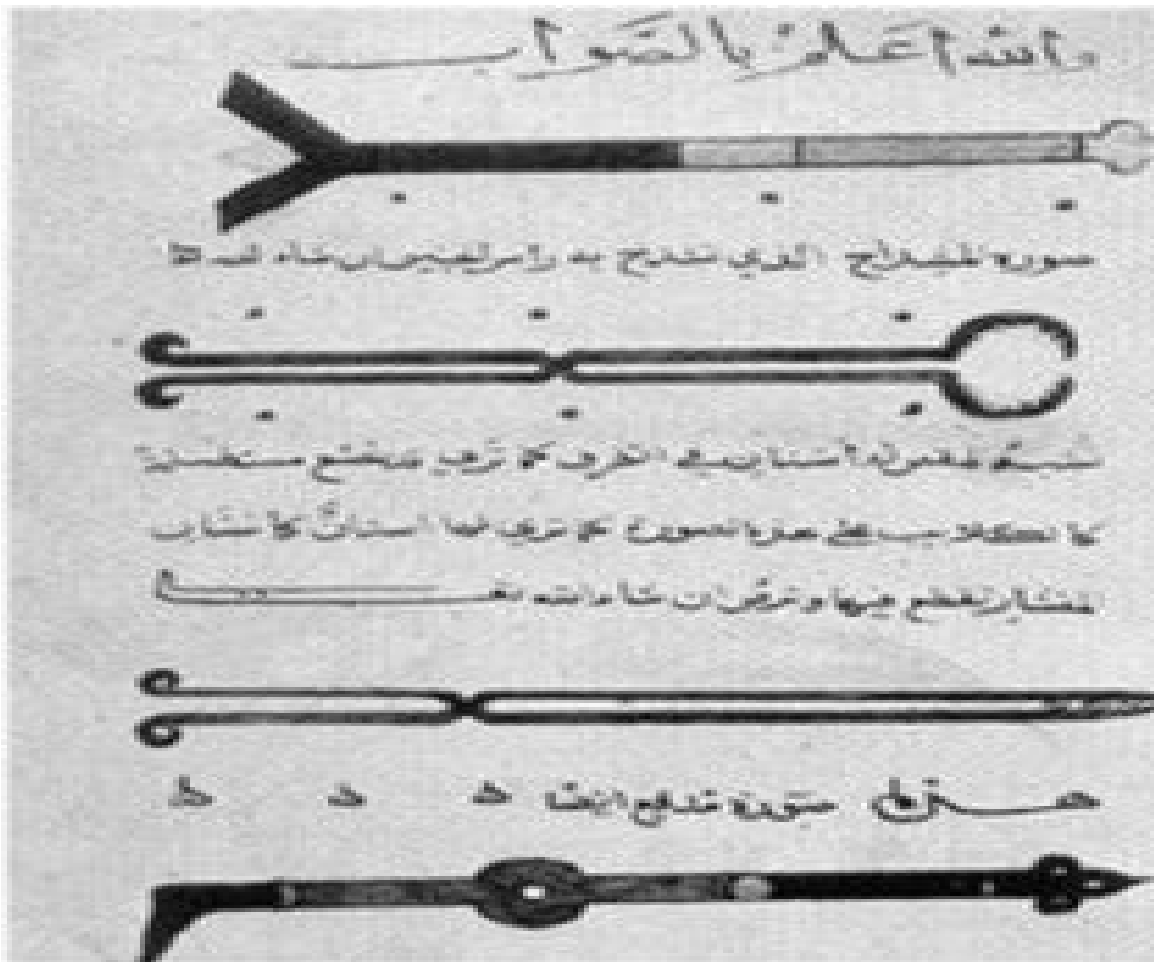 والله اعلم بالصواب
صورة المشداخ الذي تشدخ به راس الجنين ان شاء الله
له اسنان في الطرف كما ترى وقد يصنع مستطيلا
كالكلاليب على هذه الصورة كما ترى لها اسنان كاسنان
المنشار يقطع بها وترض ان شاء الله
صورة مدفع ايضا